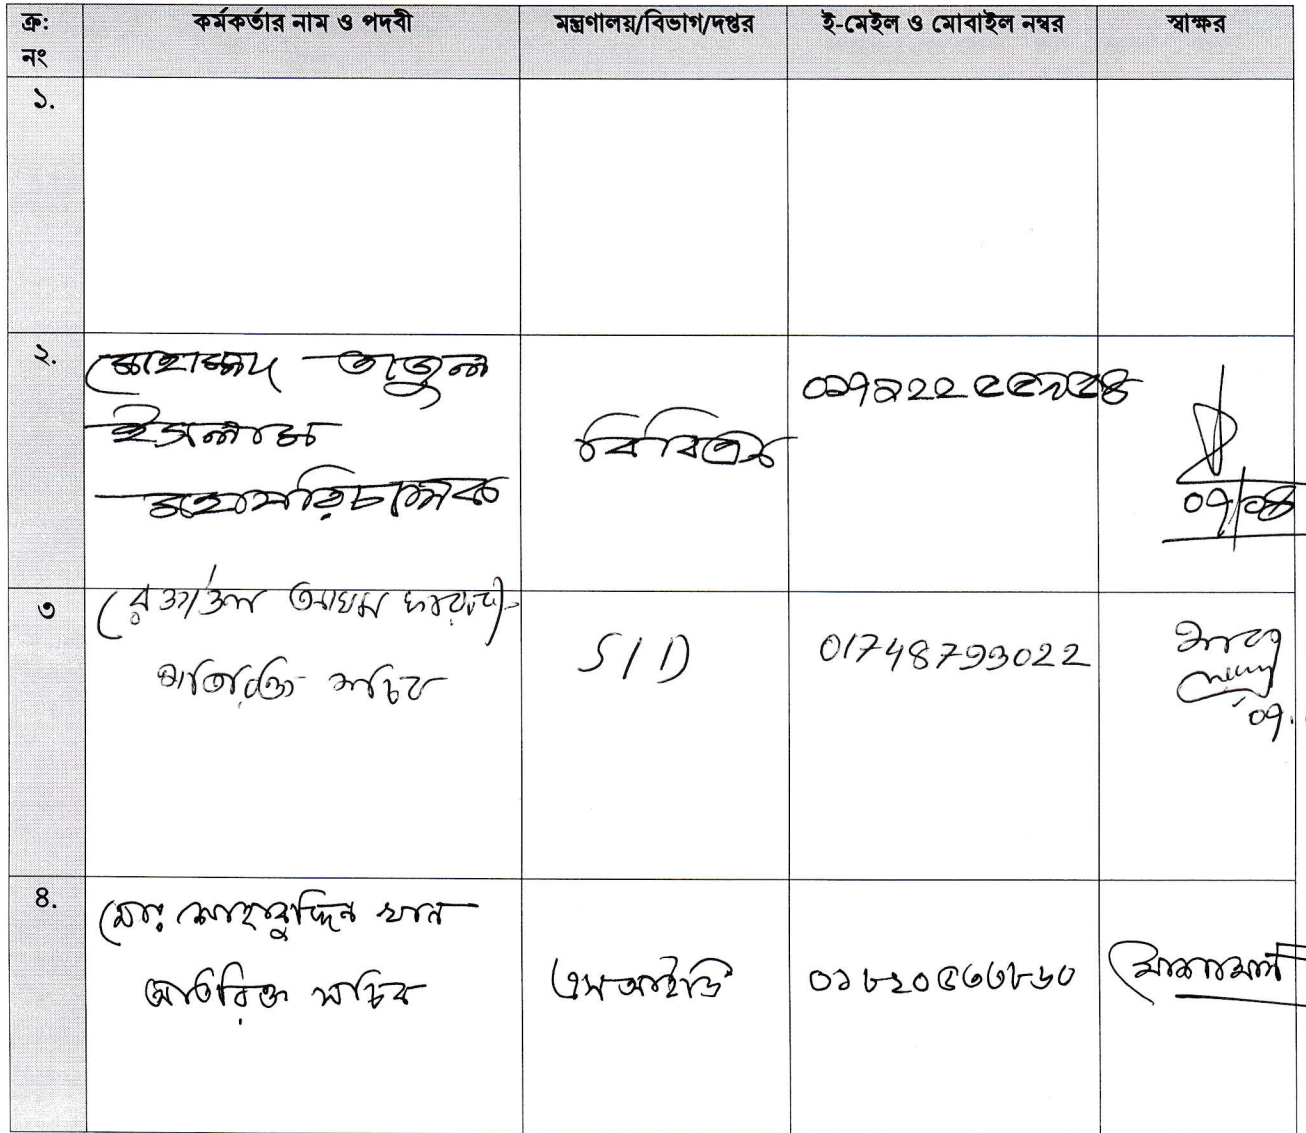 ক্র: নং কর্মকর্তার নাম ও পদবী মন্ত্রণালয়/বিভাগ/দপ্তর ই-মেইল ও মোবাইল নম্বর স্বাক্ষর
১.
২. মোহাম্মদ তাজুল
ইসলাম
মহাপরিচালক বিবিএস
০৭/০৪
৩
অতিরিক্ত সচিব SID 01748793022
০৭.
৪. মোঃ শাহাবুদ্দিন খান
অতিরিক্ত সচিব এসআইডি ০১৮২০৫৩৩৮৬০